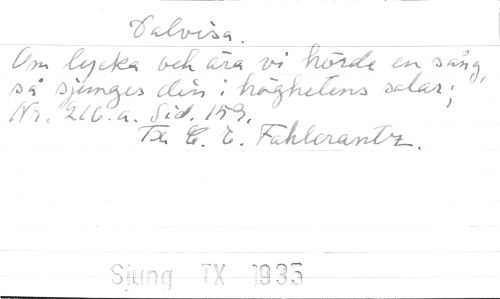 Dalvisa.
Om lycka och ära vi hörde en sång,
så sjunges din i höghetens salar;
Nr. 216.a. Sid. 159.
Tx. C. E. Fahlcrantz.
Sjung TX 1935